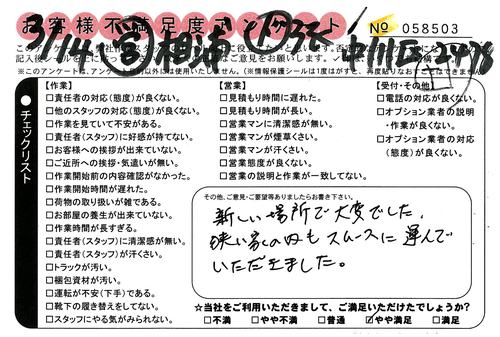 お客様不満足度アンケート
No 058503
3/14
中川区
※このアンケートは、アンケート目的以外には使用いたしません。
チェックリスト
【作業】
□責任者の対応(態度)が良くない。
□他のスタッフの対応(態度)が良くない。
□作業を見ていて不安がある。
□責任者(スタッフ)に好感が持てない。
□お客様への挨拶が出来ていない。
□ご近所への挨拶・気遣いが無い。
□作業開始前の内容確認がなかった。
□作業開始時間が遅れた。
□荷物の取り扱いが雑である。
□お部屋の養生が出来ていない。
□作業時間が長すぎる。
□責任者(スタッフ)に清潔感が無い。
□責任者(スタッフ)が汗くさい。
□トラックが汚い。
□梱包資材が汚い。
□運転が不安(下手)である。
□靴下の履き替えをしてない。
□スタッフにやる気がみられない。
【営業】
□見積もり時間に遅れた。
□見積もり時間が長い。
□営業マンに清潔感が無い。
□営業マンが煙草くさい。
□営業マンが汗くさい。
□営業態度が良くない。
□営業の説明と作業が一致してない。
【受付・その他】
□電話の対応が良くない。
□オプション業者の説明・作業が良くない。
□オプション業者の対応(態度)が良くない。
その他、ご意見・ご要望等ありましたらお書き下さい。
新しい場所で大変でした。
狭い家の内もスムースに運んで
いただきました。
★当社をご利用いただきまして、ご満足いただけたでしょうか?
□不満 □やや不満 □普通 ☑やや満足 □満足